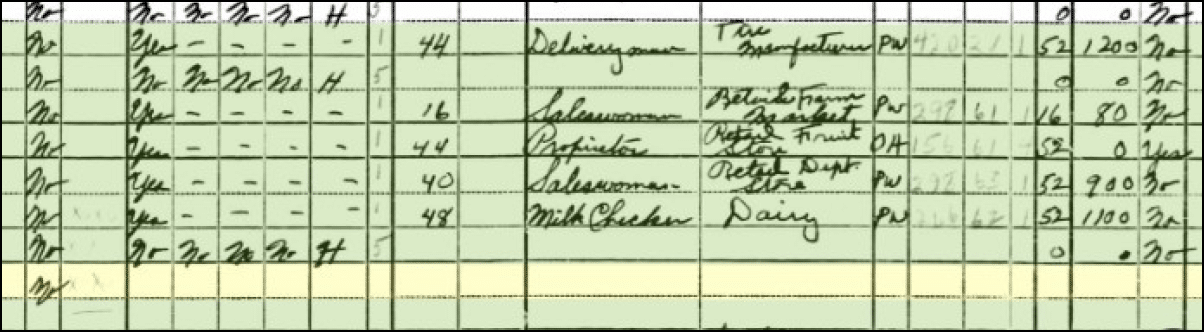 No No No No No H 5 0 0 No
No Yes - - - - 1 44 Deliveryman Tire Manufacturer PW 420 21 1 52 1200 No
No No No No No H 5 0 0 No
No Yes - - - - 1 16 Saleswoman Retail Farm Market PW 297 61 1 16 80 No
No Yes - - - - 1 44 Propietor Retail Fruit Store OA 156 61 52 0 Yes
No Yes - - - - 1 40 Saleswoman Retail Dept. Store PW 298 63 1 52 900 No
No Yes - - - - 1 48 Milk Checker Dairy PW 62 1 52 1100 No
No No No No No H 5 0 0 No
No